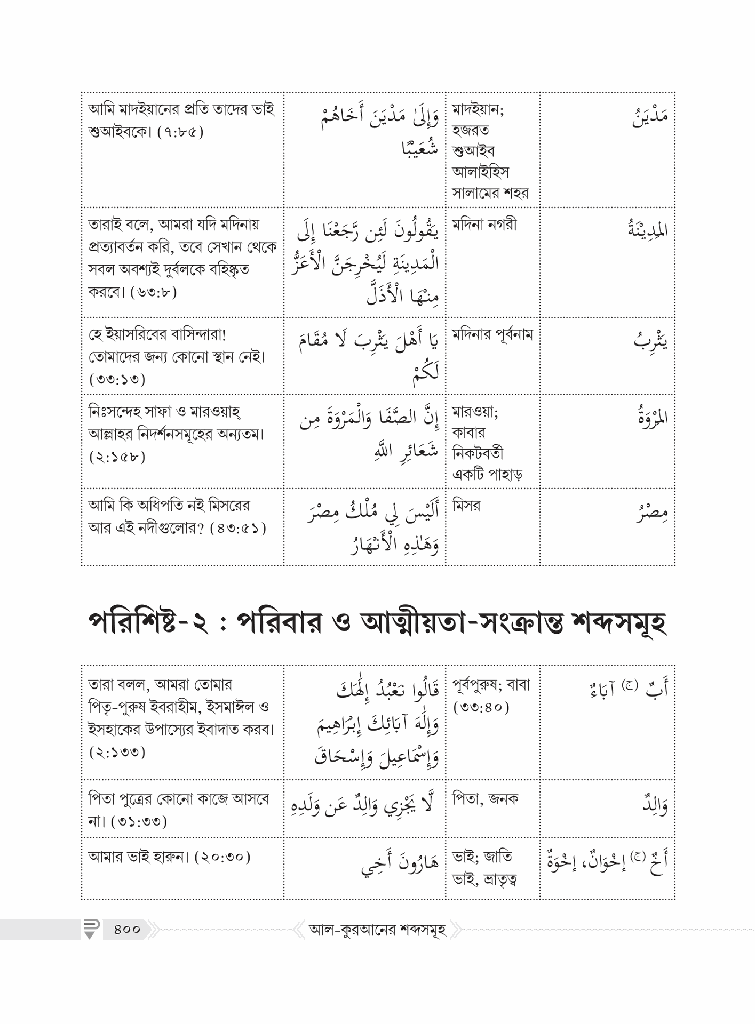 আমি মাদইয়ানের প্রতি তাদের ভাই
শুআইবকে। (৭:৮৫)
وَإِلَىٰ مَدْيَنَ أَخَاهُمْ
شُعَيْبًا
মাদইয়ান;
হজরত
শুআইব
আলাইহিস
সালামের শহর
مَدْيَنُ
তারাই বলে, আমরা যদি মদিনায়
প্রত্যাবর্তন করি, তবে সেখান থেকে
সবল অবশ্যই দুর্বলকে বহিষ্কৃত
করবে। (৬৩:৮)
يَقُولُونَ لَئِن رَّجَعْنَا إِلَى
الْمَدِينَةِ لَيُخْرِجَنَّ الْأَعَزُّ
مِنْهَا الْأَذَلَّ
মদিনা নগরী
المَدِيْنَةُ
হে ইয়াসরিবের বাসিন্দারা!
তোমাদের জন্য কোনো স্থান নেই।
(৩৩:১৩)
يَا أَهْلَ يَثْرِبَ لَا مُقَامَ
لَكُمْ
মদিনার পূর্বনাম
يَثْرِبُ
নিঃসন্দেহ সাফা ও মারওয়াহ্
আল্লাহর নিদর্শনসমূহের অন্যতম।
(২:১৫৮)
إِنَّ الصَّفَا وَالْمَرْوَةَ مِن
شَعَائِرِ اللَّهِ
মারওয়া;
কাবার
নিকটবর্তী
একটি পাহাড়
المَرْوَةُ
আমি কি অধিপতি নই মিসরের
আর এই নদীগুলোর? (৪৩:৫১)
أَلَيْسَ لِي مُلْكُ مِصْرَ
وَهَٰذِهِ الْأَنْهَارُ
মিসর
مِصْرُ
পরিশিষ্ট-২ : পরিবার ও আত্মীয়তা-সংক্রান্ত শব্দসমূহ
তারা বলল, আমরা তোমার
পিতৃ-পুরুষ ইবরাহীম, ইসমাঈল ও
ইসহাকের উপাস্যের ইবাদাত করব।
(২:১৩৩)
قَالُوا نَعْبُدُ إِلَٰهَكَ
وَإِلَٰهَ آبَائِكَ إِبْرَاهِيمَ
وَإِسْمَاعِيلَ وَإِسْحَاقَ
পূর্বপুরুষ; বাবা
(৩৩:৪০)
أَبٌ (ج) آبَاءٌ
পিতা পুত্রের কোনো কাজে আসবে
না। (৩১:৩৩)
لَّا يَجْزِي وَالِدٌ عَن وَلَدِهِ
পিতা, জনক
وَالِدٌ
আমার ভাই হারুন। (২০:৩০)
هَارُونَ أَخِي
ভাই; জাতি
ভাই, ভ্রাতৃত্ব
أَخٌ (ج) إِخْوَانٌ، إِخْوَةٌ
৪০০
আল-কুরআনের শব্দসমূহ